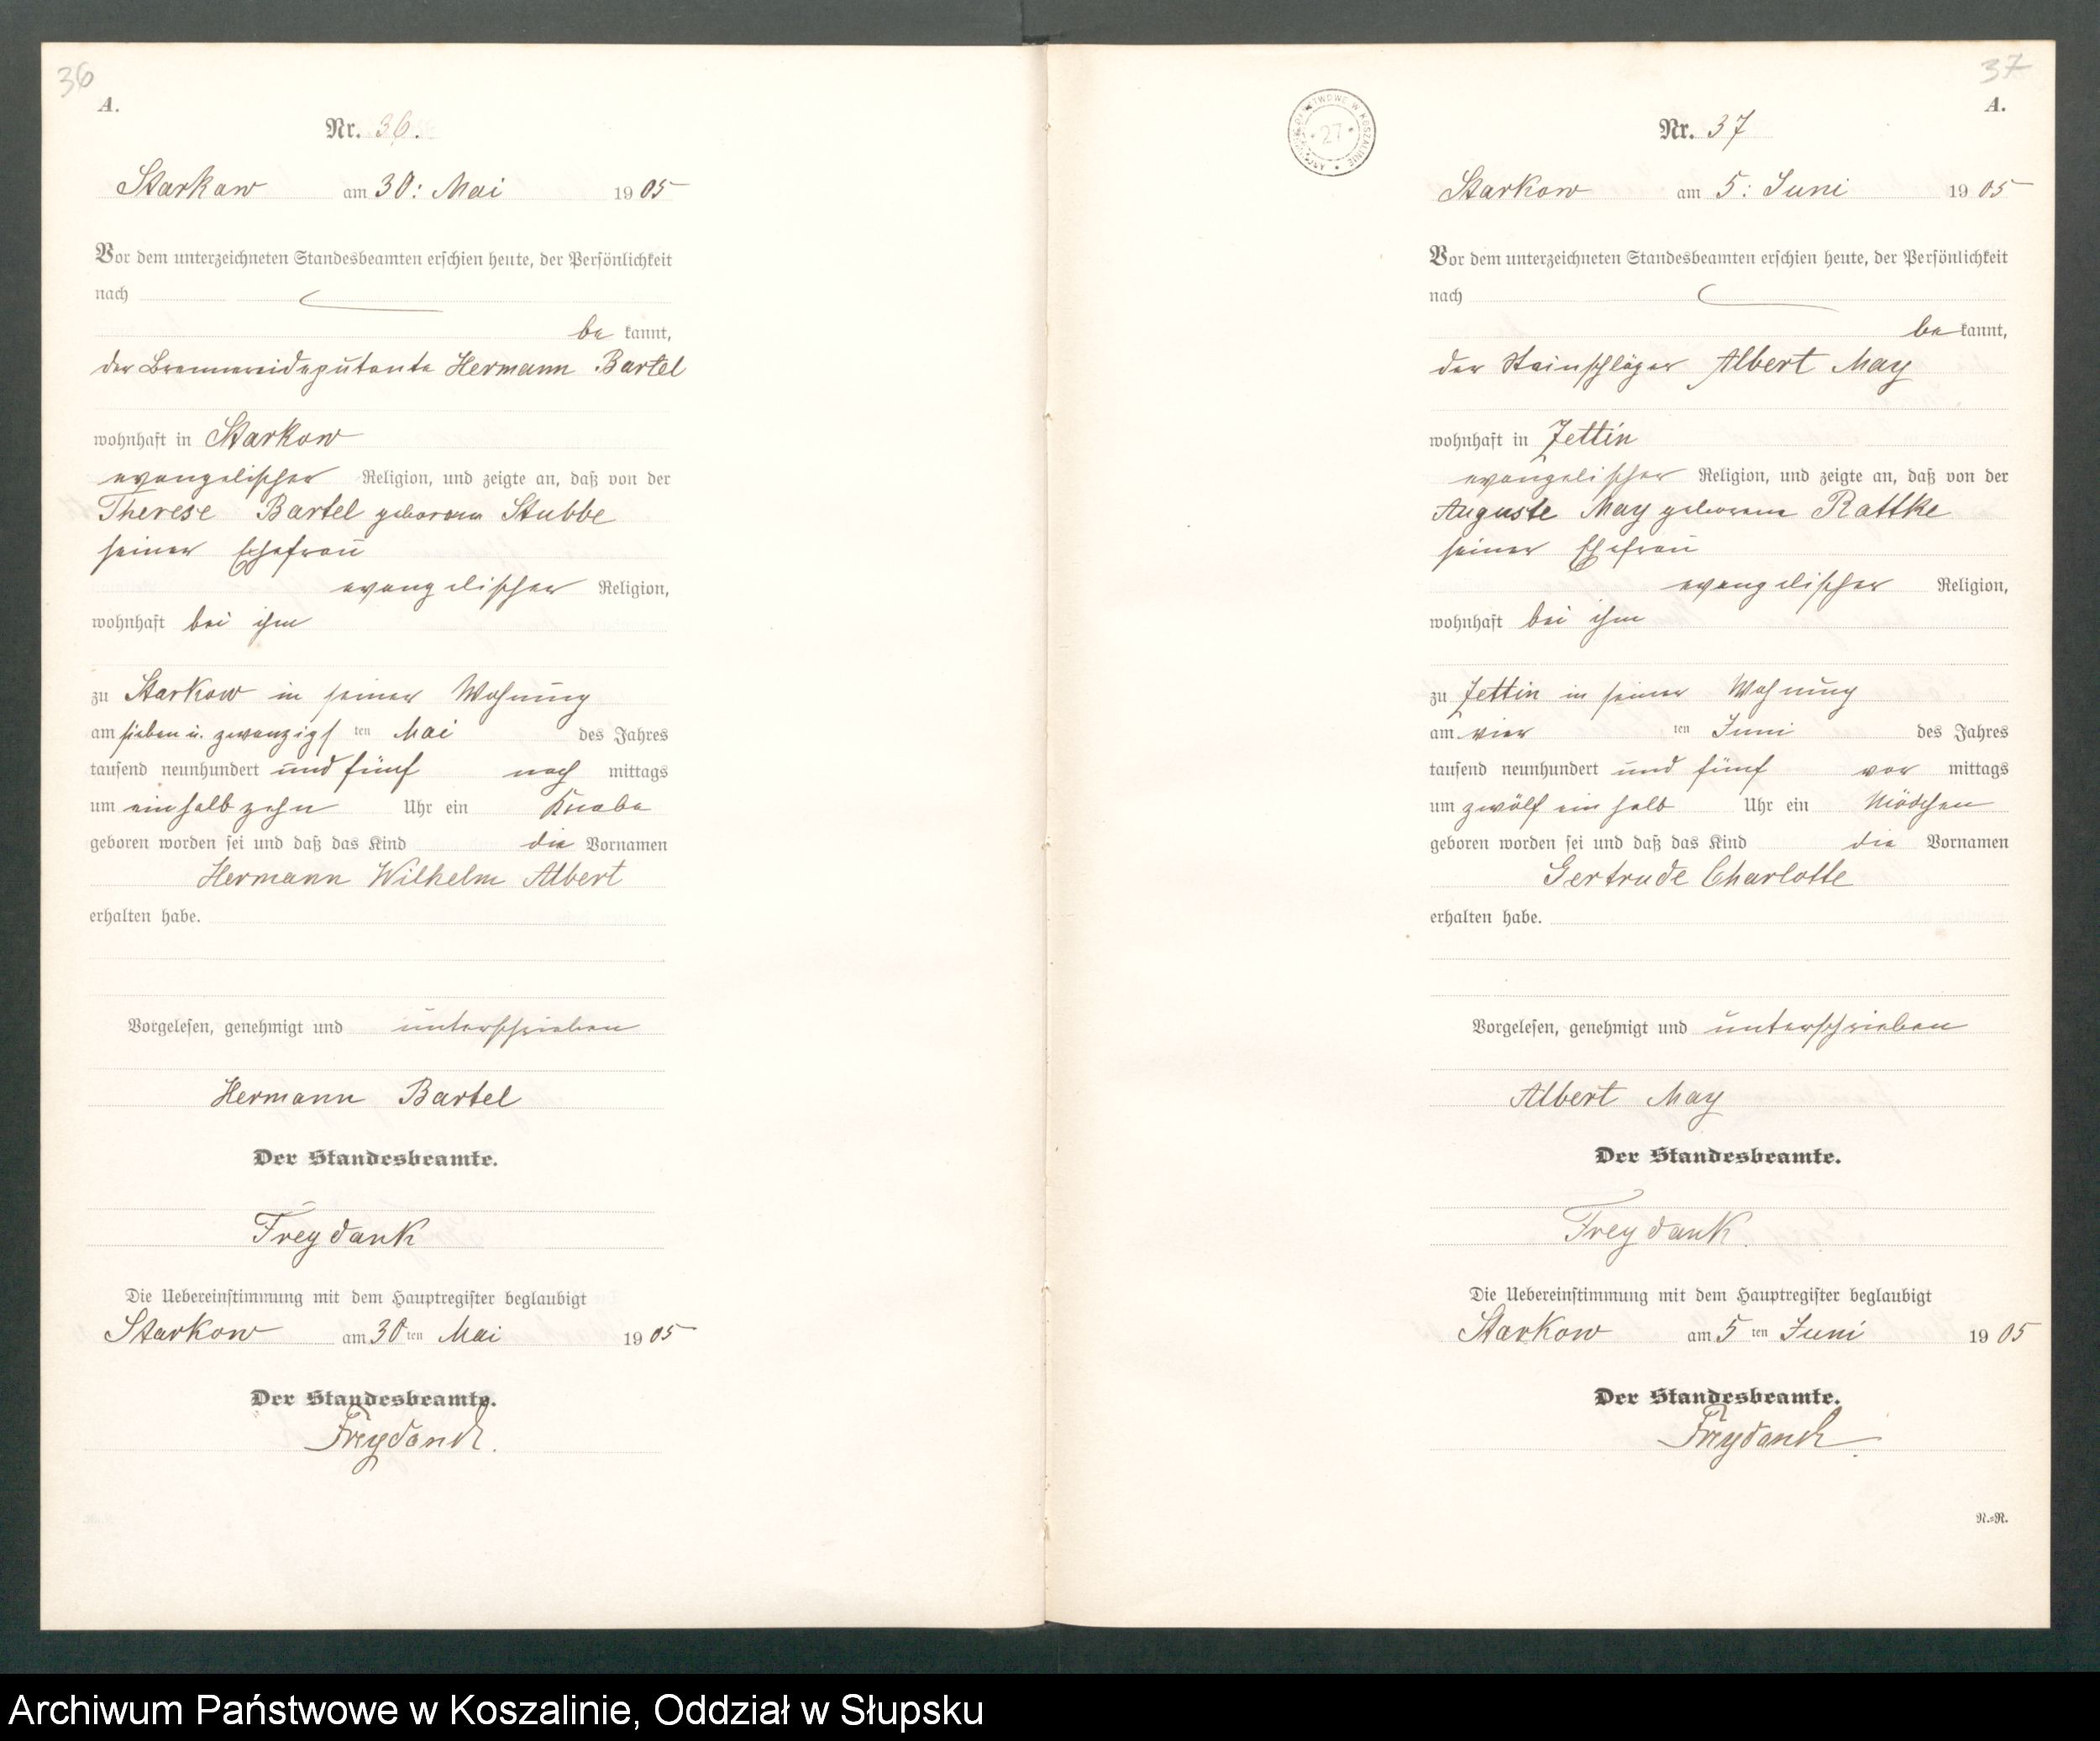 36
A.
Nr. 36.
Starkow am 30: Mai 1905
Vor dem unterzeichneten Standesbeamten erschien heute, der Persönlichkeit
nach
be kannt,
der Brennereideputante Hermann Bartel
wohnhaft in Starkow
evangelischer Religion, und zeigte an, daß von der
Therese Bartel geborenen Stubbe
seiner Ehefrau
evangelischer Religion,
wohnhaft bei ihm
zu Starkow in seiner Wohnung
am sieben u. zwanzigs ten Mai des Jahres
tausend neunhundert und fünf nach mittags
um ein halb zehn Uhr ein Knabe
geboren worden sei und daß das Kind die Vornamen
Hermann Wilhelm Albert
erhalten habe.
Vorgelesen, genehmigt und unterschrieben
Hermann Bartel
Der Standesbeamte.
Freydank
Die Uebereinstimmung mit dem Hauptregister beglaubigt
Starkow am 30 ten Mai 1905
Der Standesbeamte.
Freydank.
37
A.
27
Nr. 37
Starkow am 5: Juni 1905
Vor dem unterzeichneten Standesbeamten erschien heute, der Persönlichkeit
nach
be kannt,
der Steinschläger Albert May
wohnhaft in Zettin
evangelischer Religion, und zeigte an, daß von der
Auguste May geborene Rattke
seiner Ehefrau
evangelischer Religion,
wohnhaft bei ihm
zu Zettin in seiner Wohnung
am vier ten Juni des Jahres
tausend neunhundert und fünf vor mittags
um zwölf ein halb Uhr ein Mädchen
geboren worden sei und daß das Kind die Vornamen
Gertrude Charlotte
erhalten habe.
Vorgelesen, genehmigt und unterschrieben
Albert May
Der Standesbeamte.
Freydank
Die Uebereinstimmung mit dem Hauptregister beglaubigt
Starkow am 5 ten Juni 1905
Der Standesbeamte.
Freydank.
N.=R.
Archiwum Państwowe w Koszalinie, Oddział w Słupsku